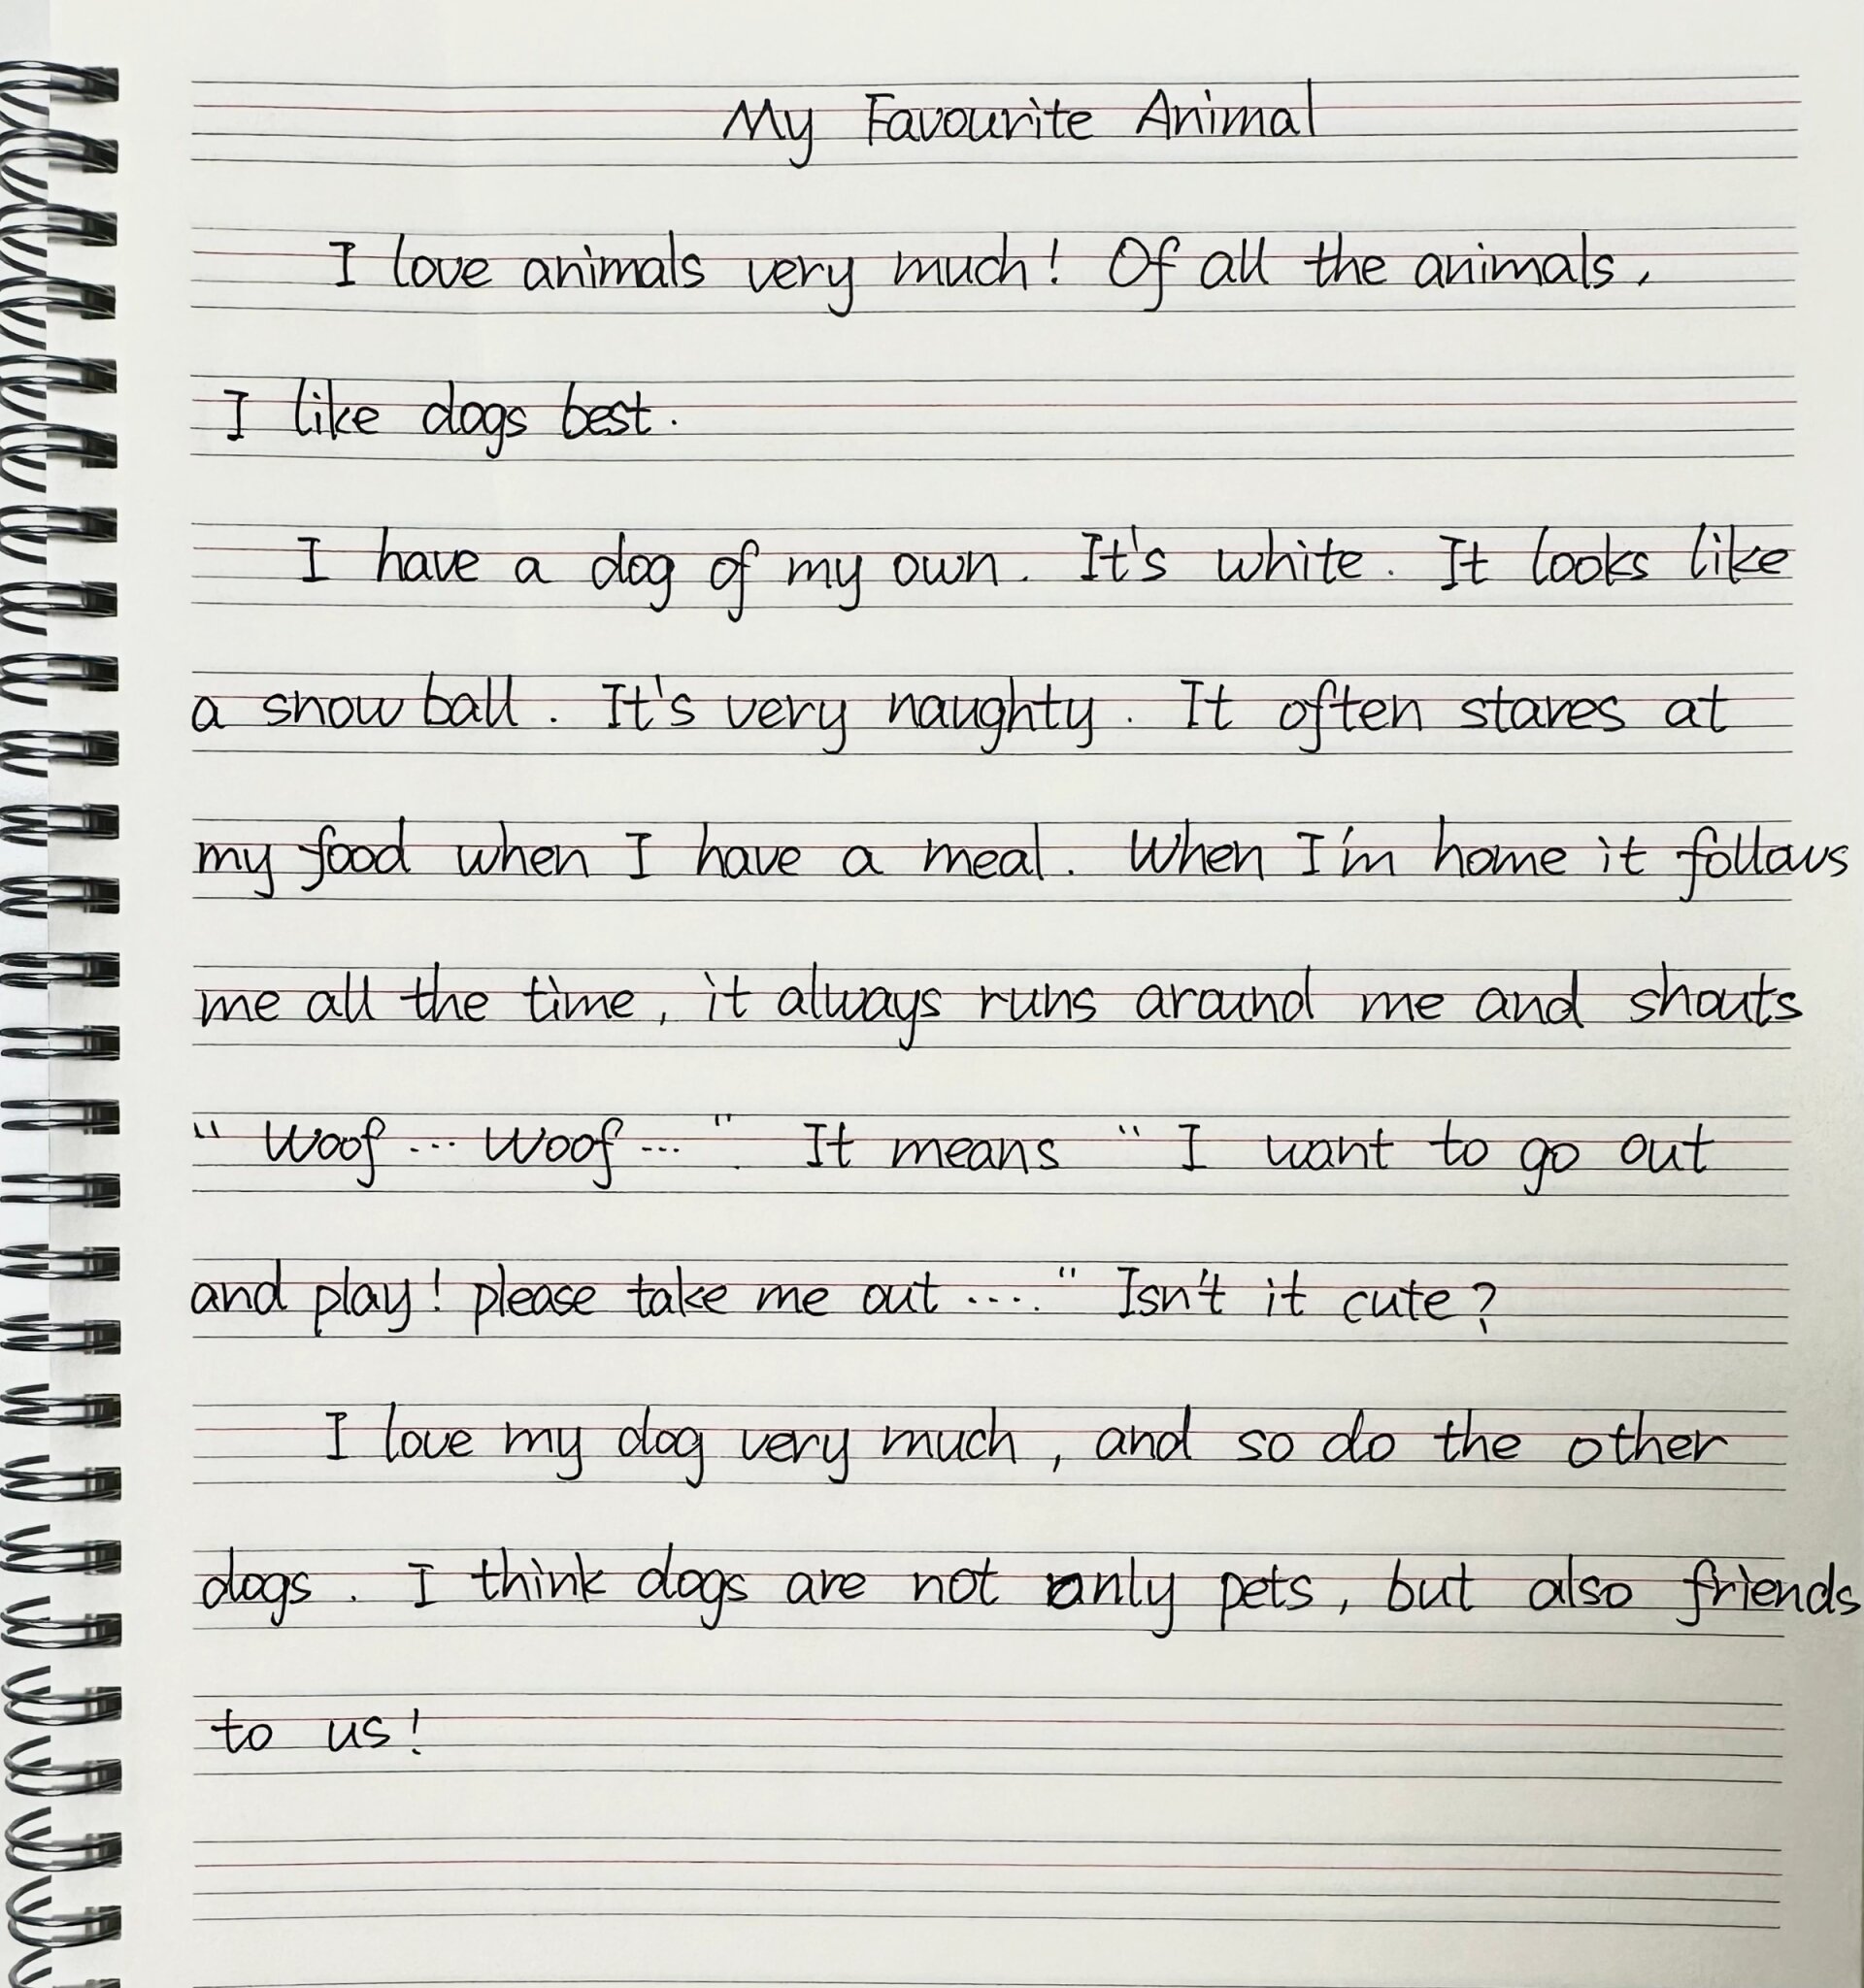 My Favourite Animal
I love animals very much! Of all the animals,
I like dogs best.
I have a dog of my own. It's white. It looks like
a snow ball. It's very naughty. It often stares at
my food when I have a meal. When I'm home it follows
me all the time, it always runs around me and shouts
"Woof... Woof...". It means "I want to go out
and play! please take me out...." Isn't it cute?
I love my dog very much, and so do the other
dogs. I think dogs are not only pets, but also friends
to us!